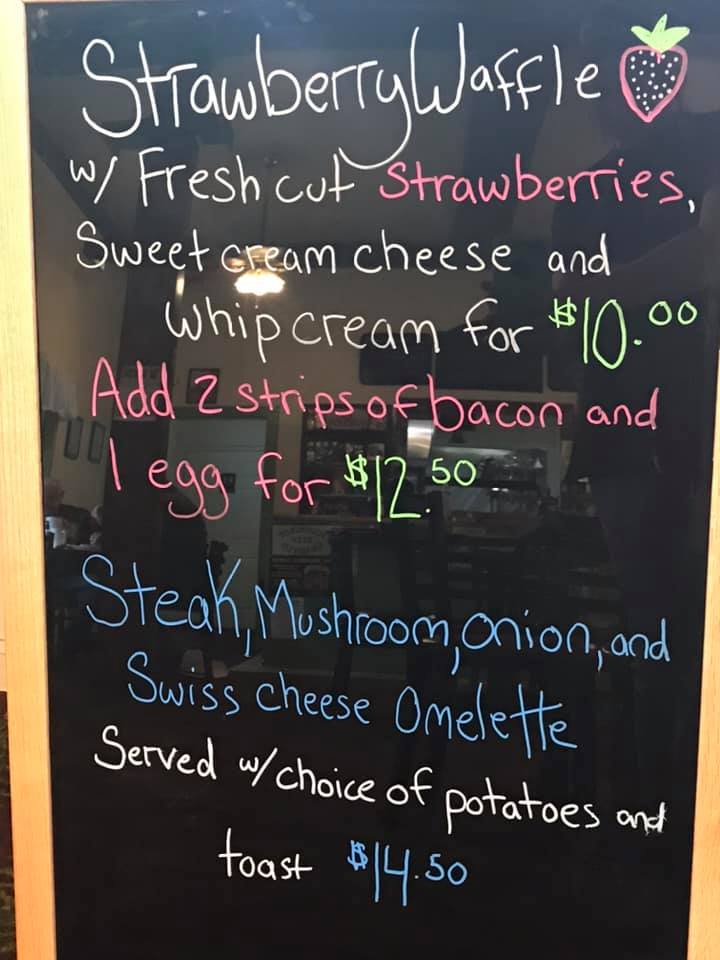 Strawberry Waffle
w/ Fresh cut Strawberries,
Sweet cream cheese and
whip cream for $10.00
Add 2 strips of bacon and
1 egg for $12.50
Steak, Mushroom, onion, and
Swiss cheese Omelette
Served w/ choice of potatoes and
toast $14.50